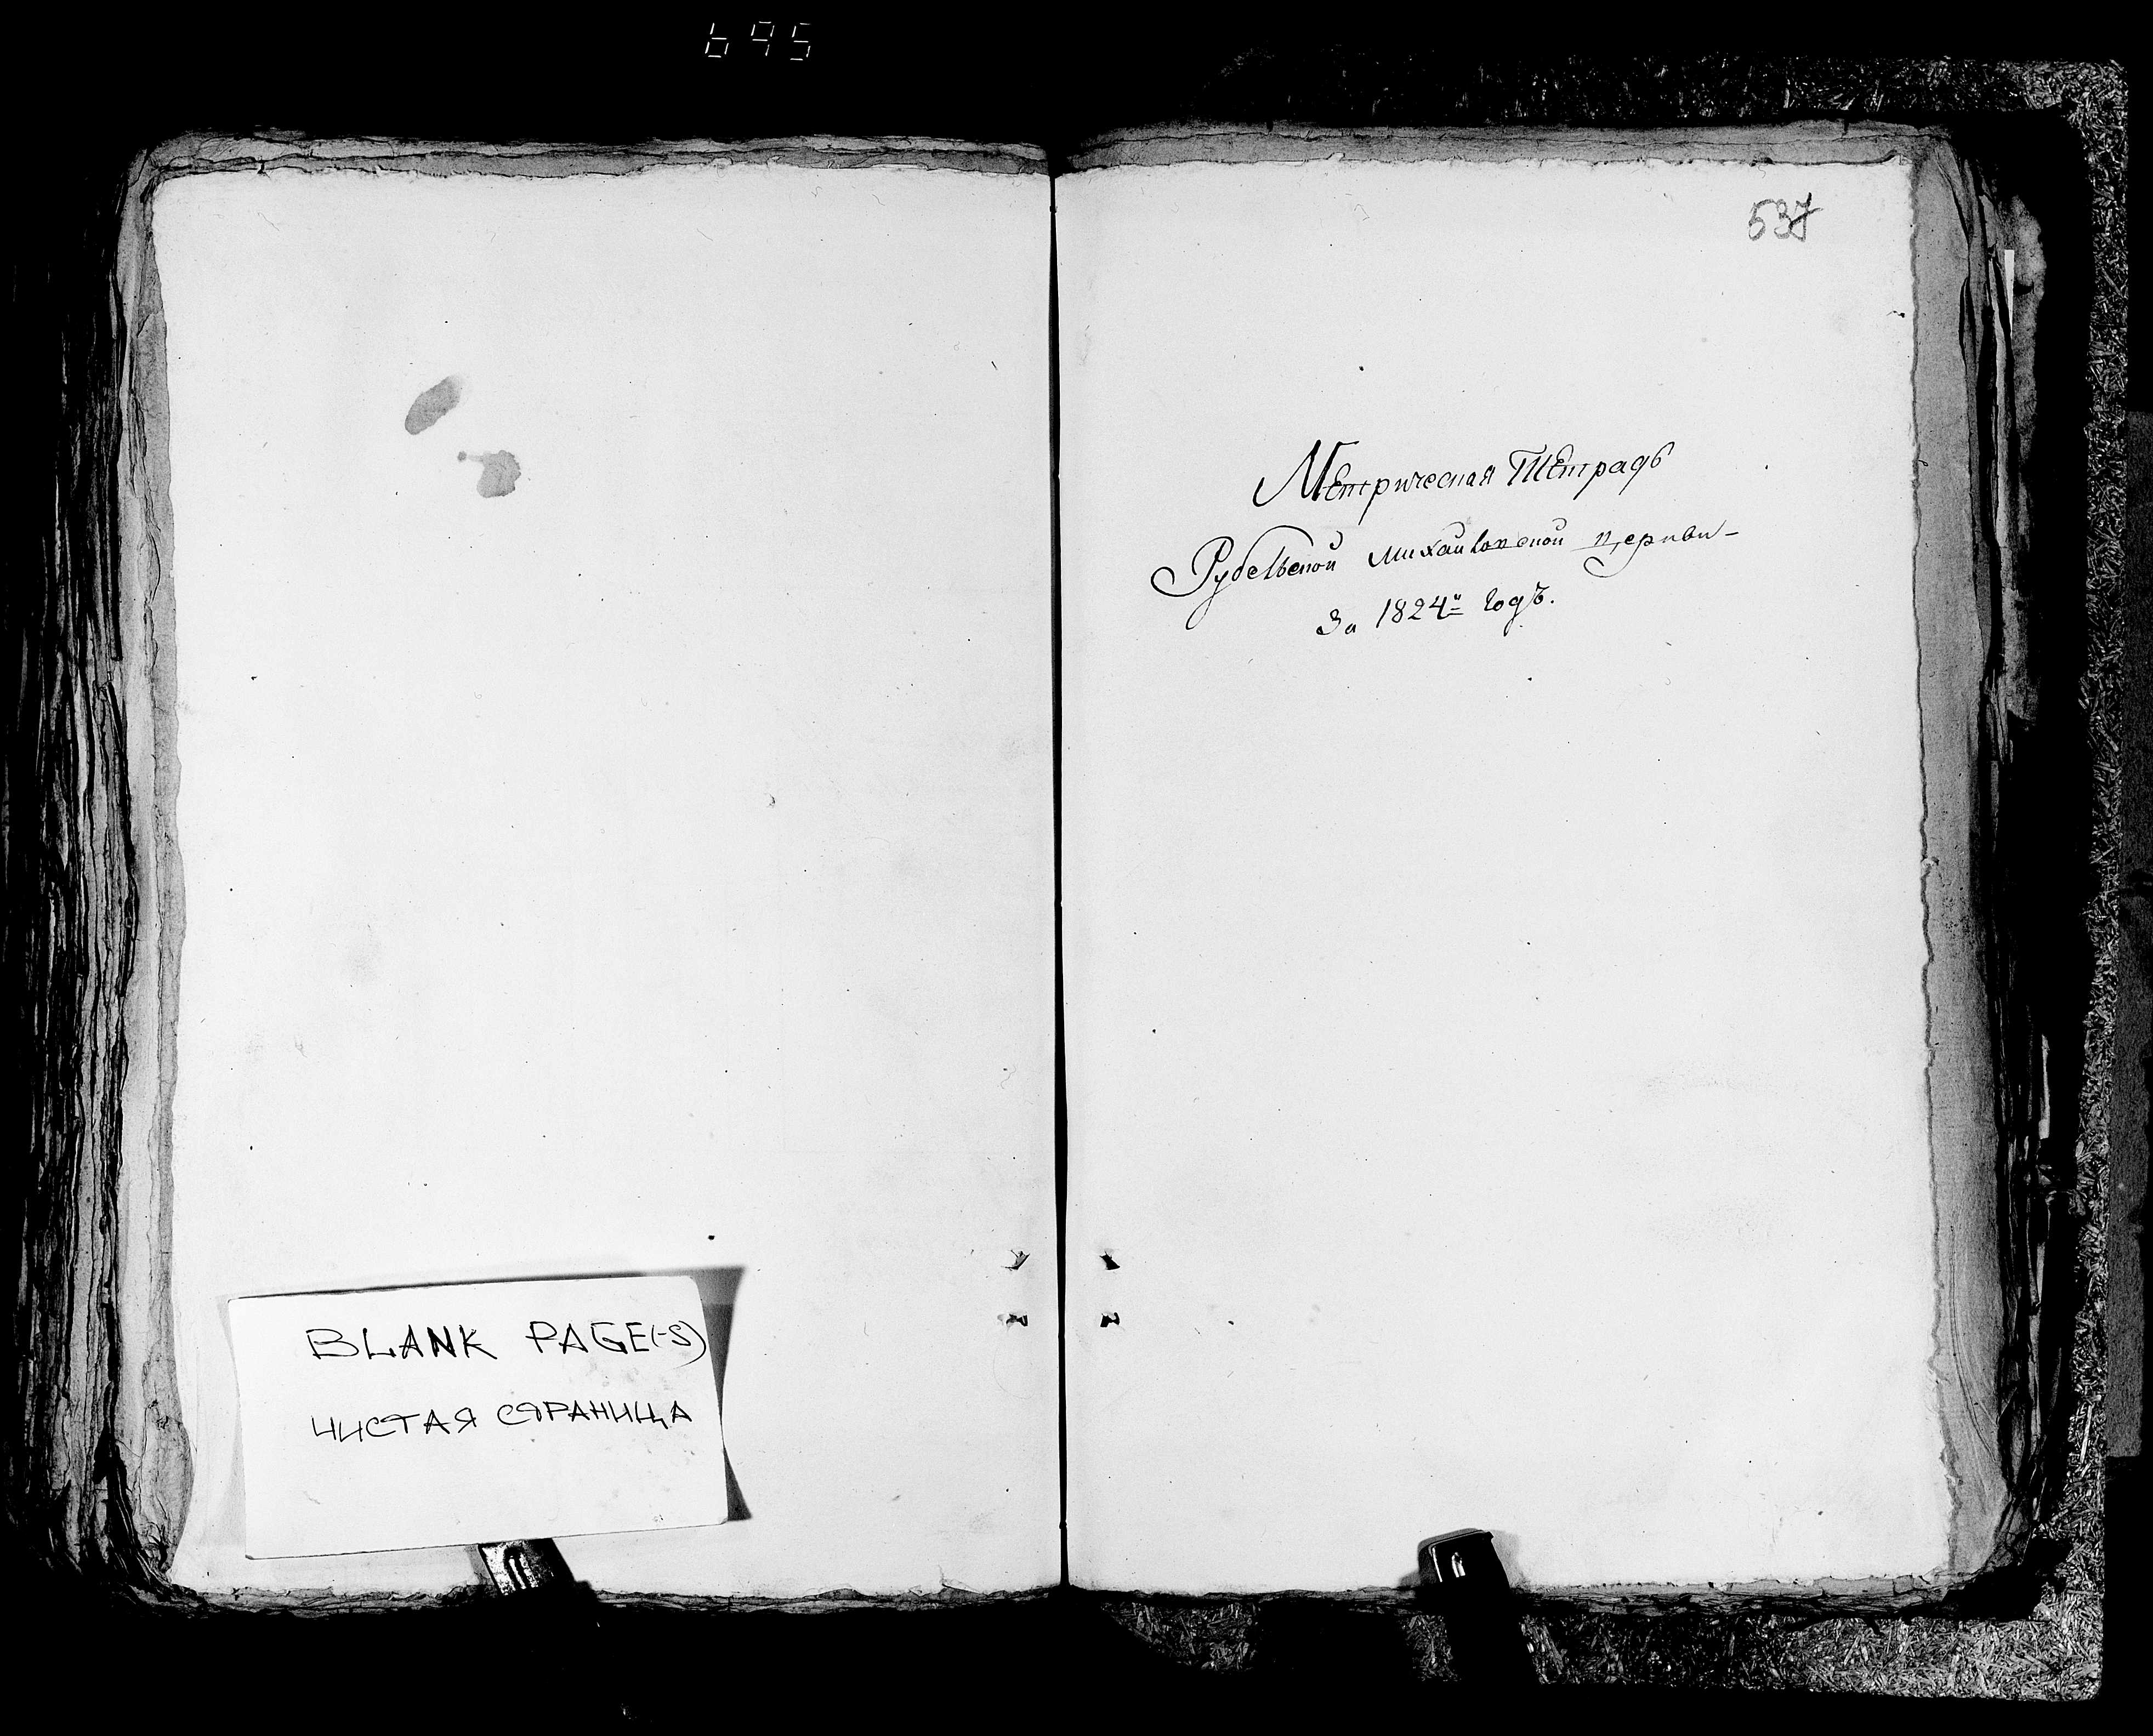 695
537
Метрическая Тетрадь
Рубельской Михайловской церкви-
За 1824й Годъ.
BLANK PAGE(-S)
ЧИСТАЯ СТРАНИЦА